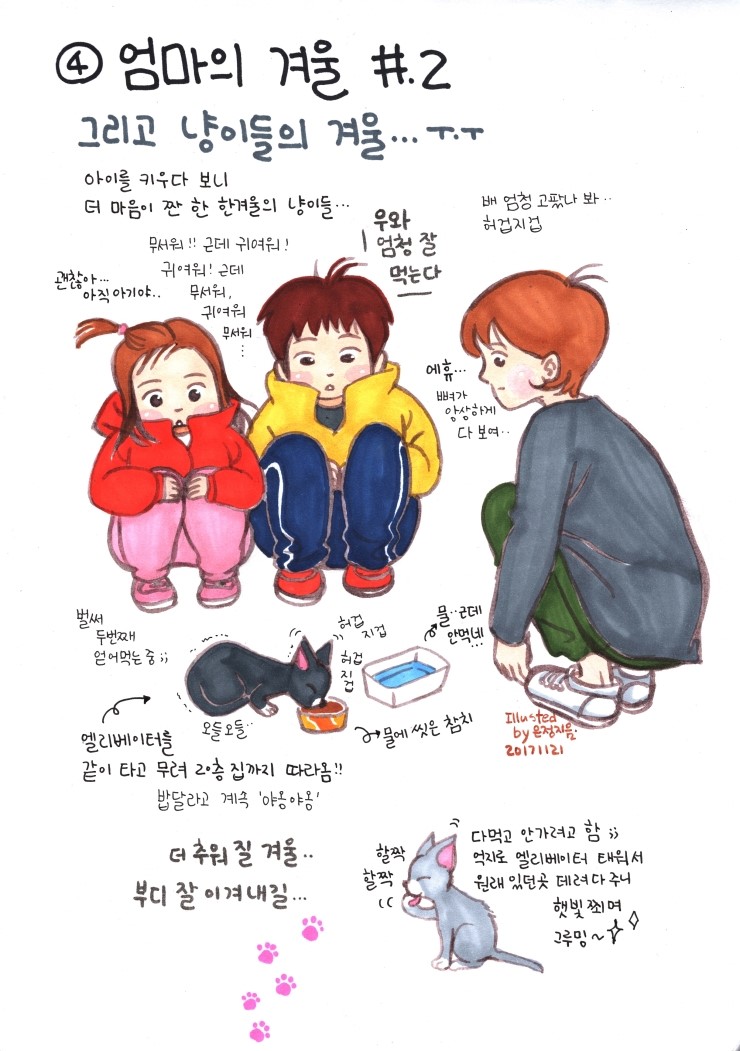 ④ 엄마의 겨울 #.2
그리고 냥이들의 겨울... ㅜ.ㅜ
아이를 키우다 보니
더 마음이 짠 한 한겨울의 냥이들...
배 엄청 고팠나 봐..
허겁지겁
우와
엄청 잘
먹는다
무서워!! 근데 귀여워!
귀여워! 근데
무서워,
귀여워
무서워
⋮
괜찮아...
아직 아기야..
에휴...
뼈가
앙상하게
다 보여..
벌써
두번째
얻어먹는 중;;
허겁
지겁
허겁
지겁
물..근데
안먹네...
오들오들..
물에 씻은 참치
엘리베이터를
같이 타고 무려 20층 집까지 따라옴!!
밥달라고 계속 '야옹야옹'
Illusted
by 윤정지음.
20171121
더 추워 질 겨울..
부디 잘 이겨내길...
할짝
할짝
다먹고 안가려고 함 ;;
억지로 엘리베이터 태워서
원래 있던곳 데려다 주니
햇빛 쬐며
그루밍~